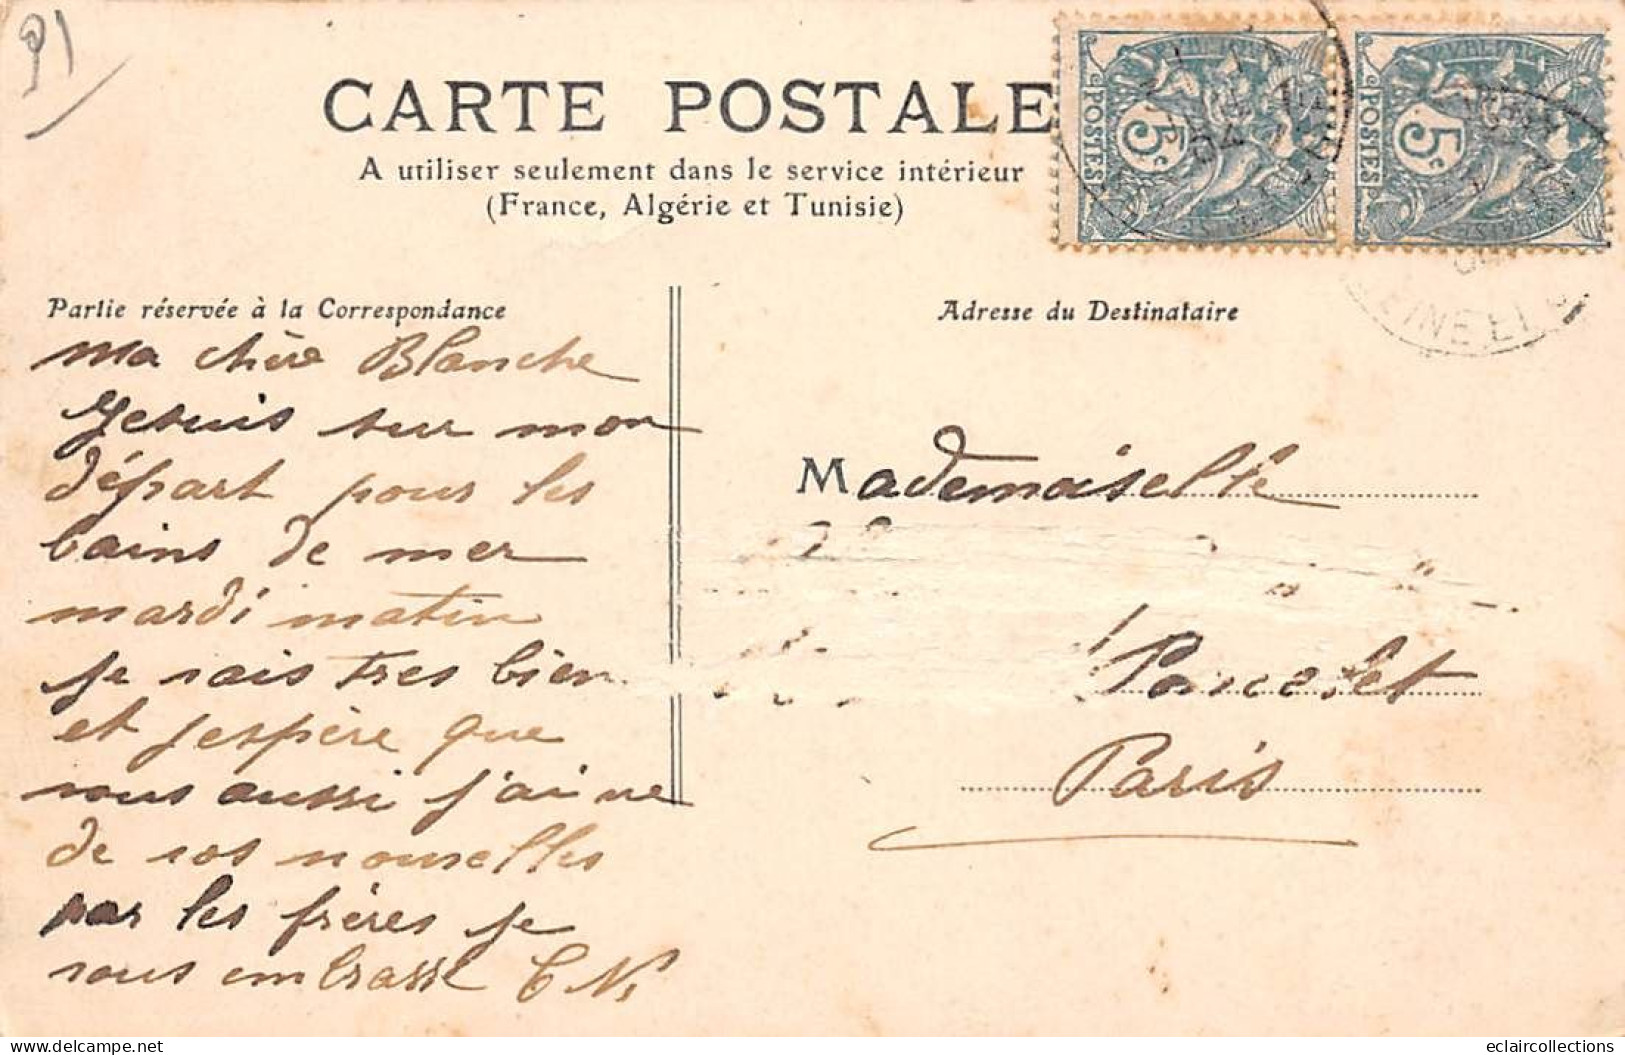 91
CARTE POSTALE
A utiliser seulement dans le service intérieur
(France, Algérie et Tunisie)
POSTES 5c
POSTES 5c
04
SEINE ET
Partie réservée à la Correspondance
Adresse du Destinataire
Ma chère Blanche
Je suis sur mon
départ pour les
bains de mer
mardi matin
je vais tres bien
et j'espère que
vous aussi j'ai ue
de vos nouvelles
par les frères je
vous embrasse C N,
Mademoiselle
Poncelet
Paris
delcampe.net
eclaircollections